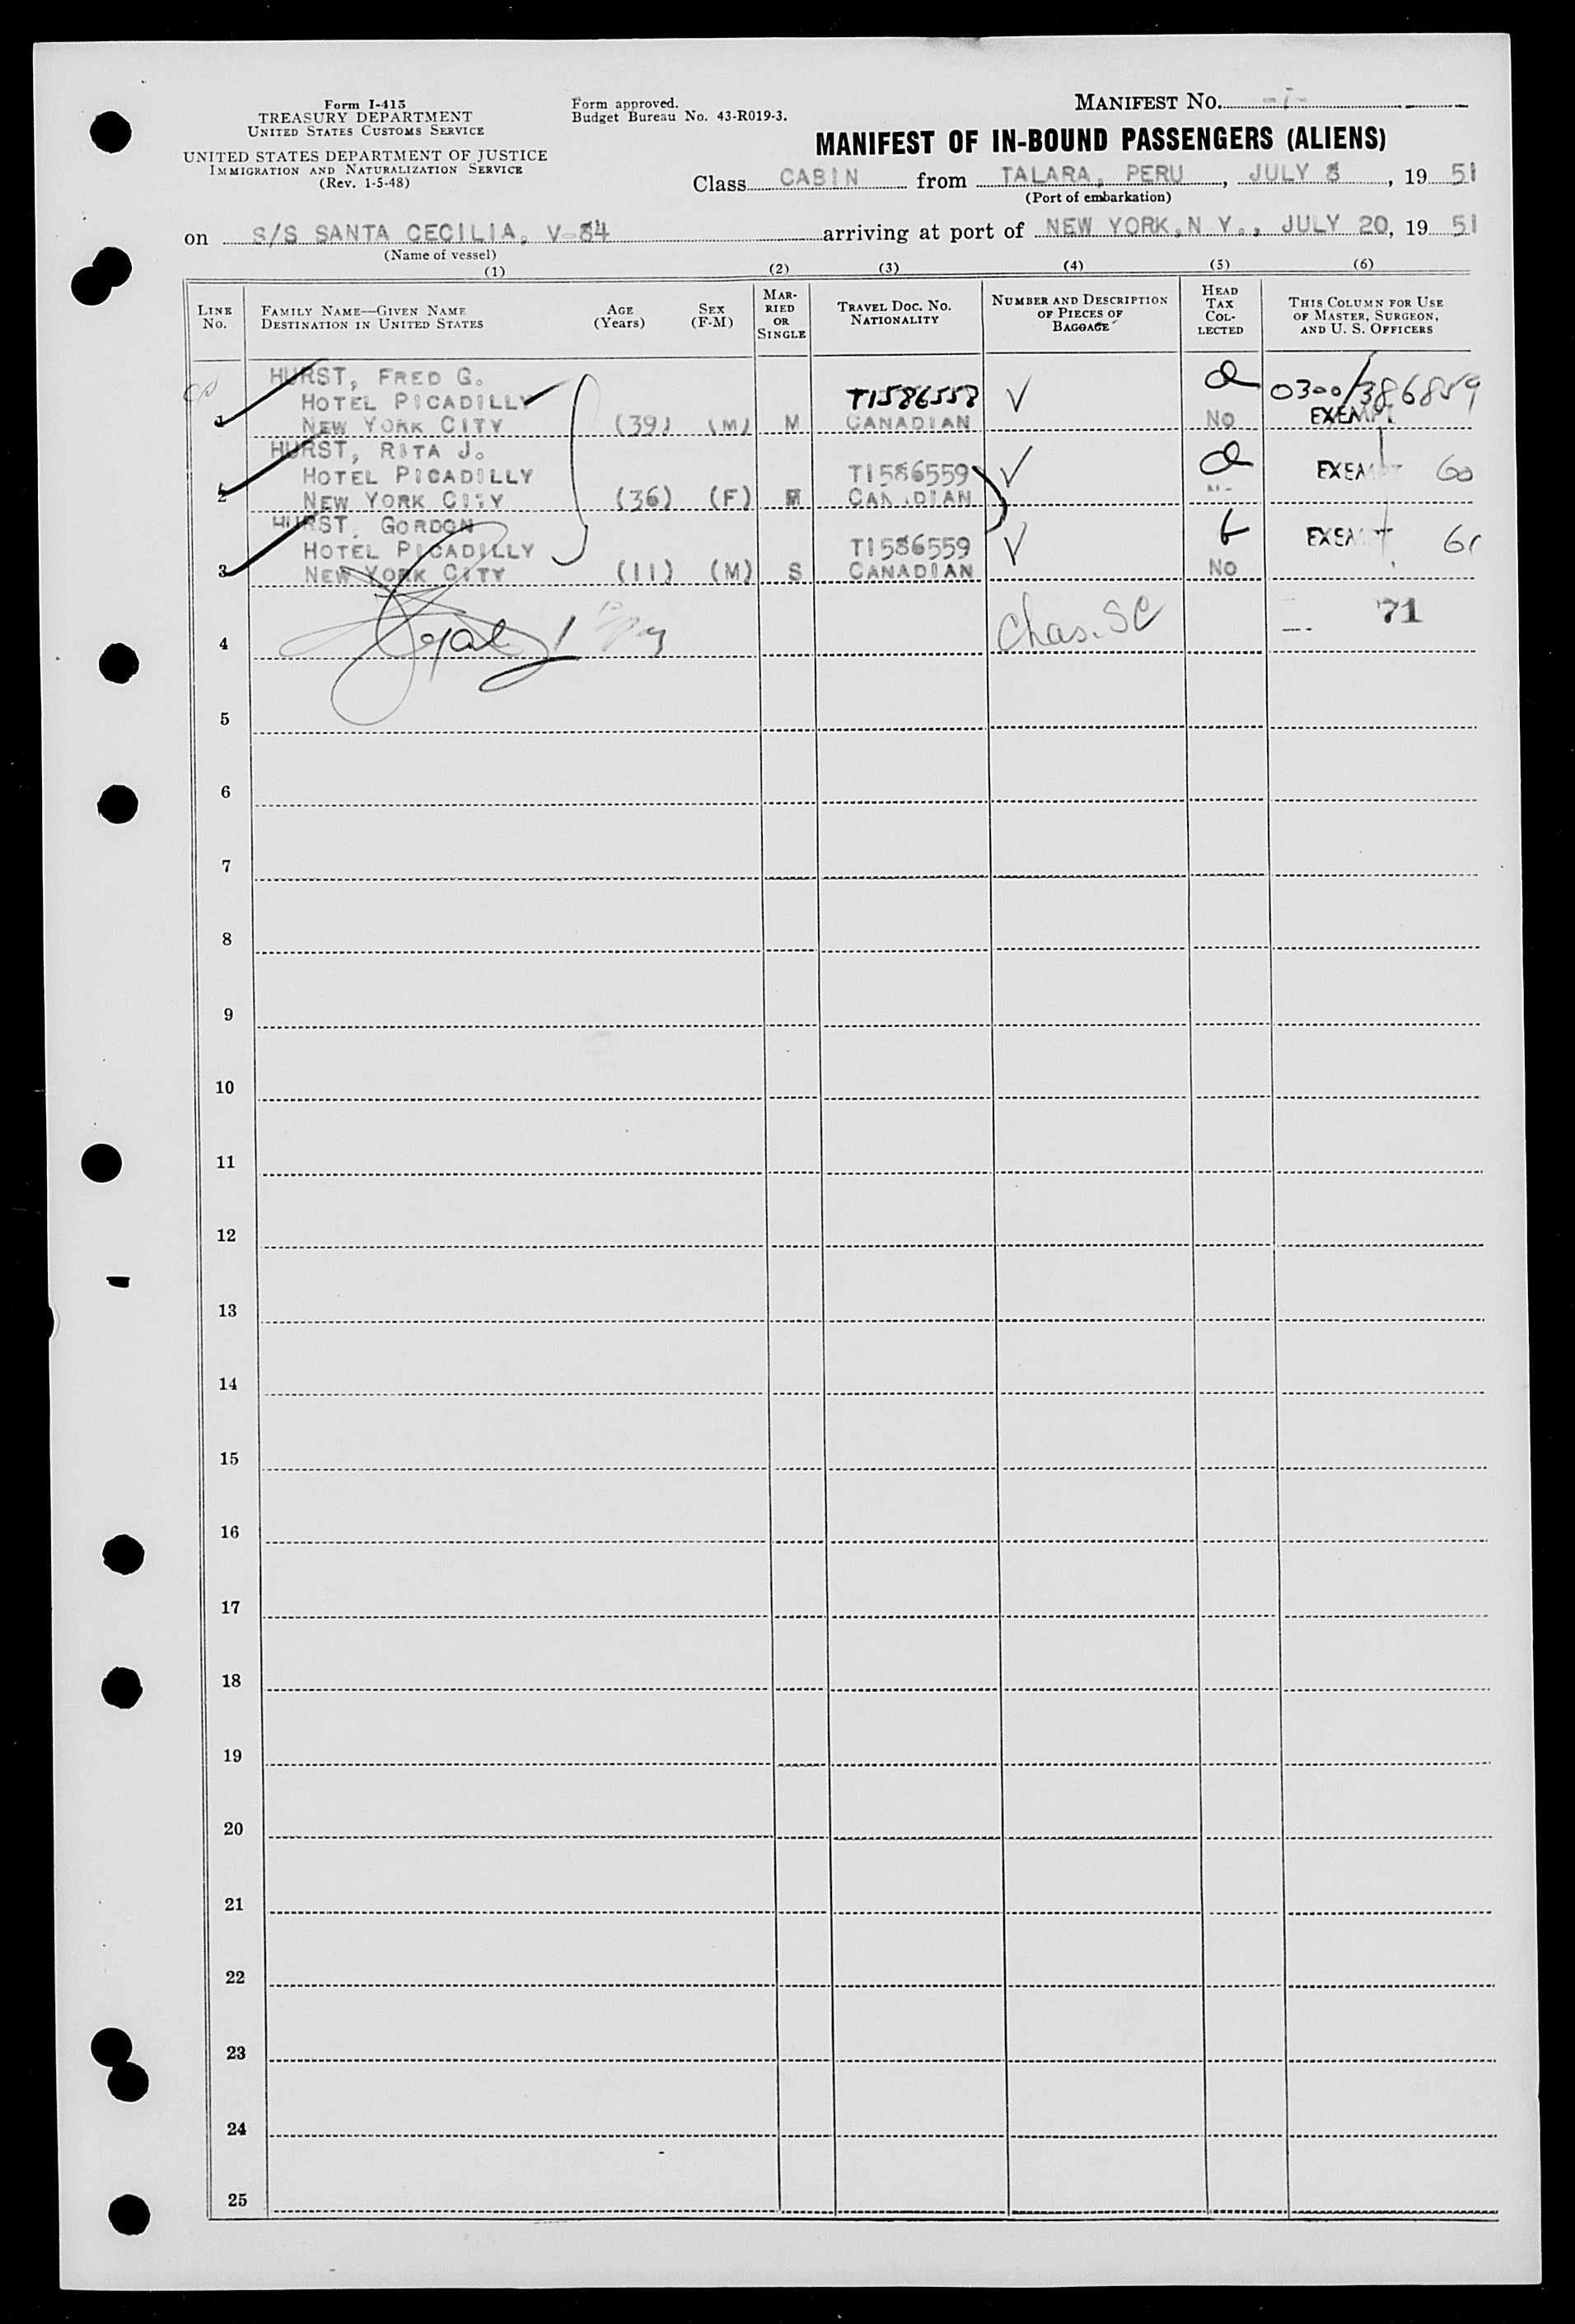 Form I-415
TREASURY DEPARTMENT
UNITED STATES CUSTOMS SERVICE
UNITED STATES DEPARTMENT OF JUSTICE
IMMIGRATION AND NATURALIZATION SERVICE
(Rev. 1-5-48)
Form approved.
Budget Bureau No. 43-R019-3.
MANIFEST NO.
MANIFEST OF IN-BOUND PASSENGERS (ALIENS)
Class CABIN from TALARA, PERU, JULY 8, 19 51
(Port of embarkation)
on S/S SANTA CECILIA, V-84 arriving at port of NEW YORK, N Y., JULY 20, 19 51
(Name of vessel)
(1) (2) (3) (4) (5) (6)
LINE NO.
FAMILY NAME—GIVEN NAME
DESTINATION IN UNITED STATES
AGE (Years)
SEX (F-M)
MARRIED OR SINGLE
TRAVEL DOC. NO.
NATIONALITY
NUMBER AND DESCRIPTION OF PIECES OF BAGGAGE
HEAD TAX COLLECTED
THIS COLUMN FOR USE OF MASTER, SURGEON, AND U. S. OFFICERS
HURST, FRED G.
HOTEL PICADILLY T1586558 √ 0300/386859
1 NEW YORK CITY (39) (M) M CANADIAN NO EXEMPT
HURST, RITA J.
HOTEL PICADILLY T1586559 √ EXEMPT 60
2 NEW YORK CITY (36) (F) M CANADIAN
HURST, GORDON
HOTEL PICADILLY T1586559 √ EXEMPT 61
3 NEW YORK CITY (11) (M) S CANADIAN NO
4 Chas. SC 71
5
6
7
8
9
10
11
12
13
14
15
16
17
18
19
20
21
22
23
24
25